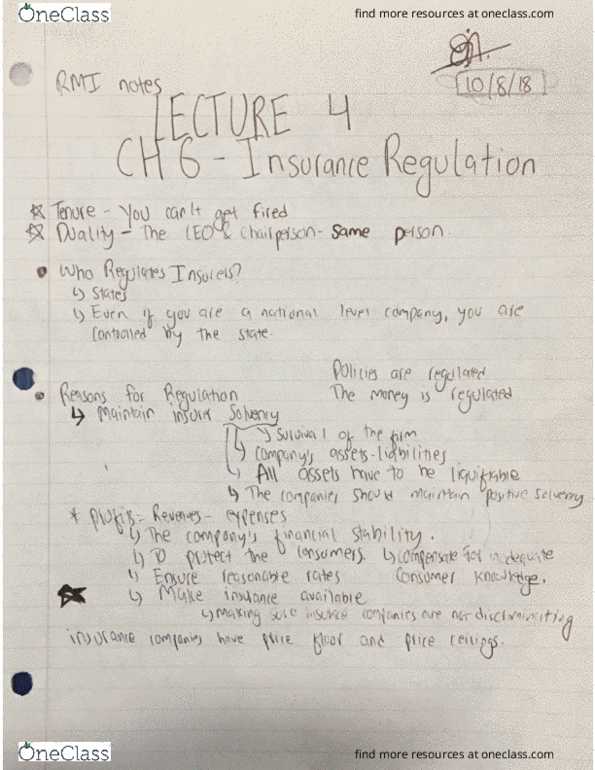 OneClass
find more resources at oneclass.com
10/8/18
RMI notes
LECTURE 4
CH 6 - Insurance Regulation
Tenure - You can't get fired
Duality - The CEO & Chairperson - same person.
Who Regulates Insurers?
↳ States
↳ Even if you are a national level company, you are
controlled by the state.
Policies are regulated
Reasons for Regulation
The money is regulated
↳ Maintain insurer Solvency
↳ Survival of the firm
↳ Company's assets-liabilities
↳ All assets have to be liquifiable
↳ The companies should maintain positive solvency
* Profis = Revenues - expenses
↳ The company's financial stability.
↳ To protect the consumers. ↳ Compensate for inadequate
↳ Ensure reasonable rates
consumer knowledge.
↳ Make insurance available
↳ making sure insurance companies are not discriminating
insurance companies have price floor and price ceilings.
OneClass
find more resources at oneclass.com